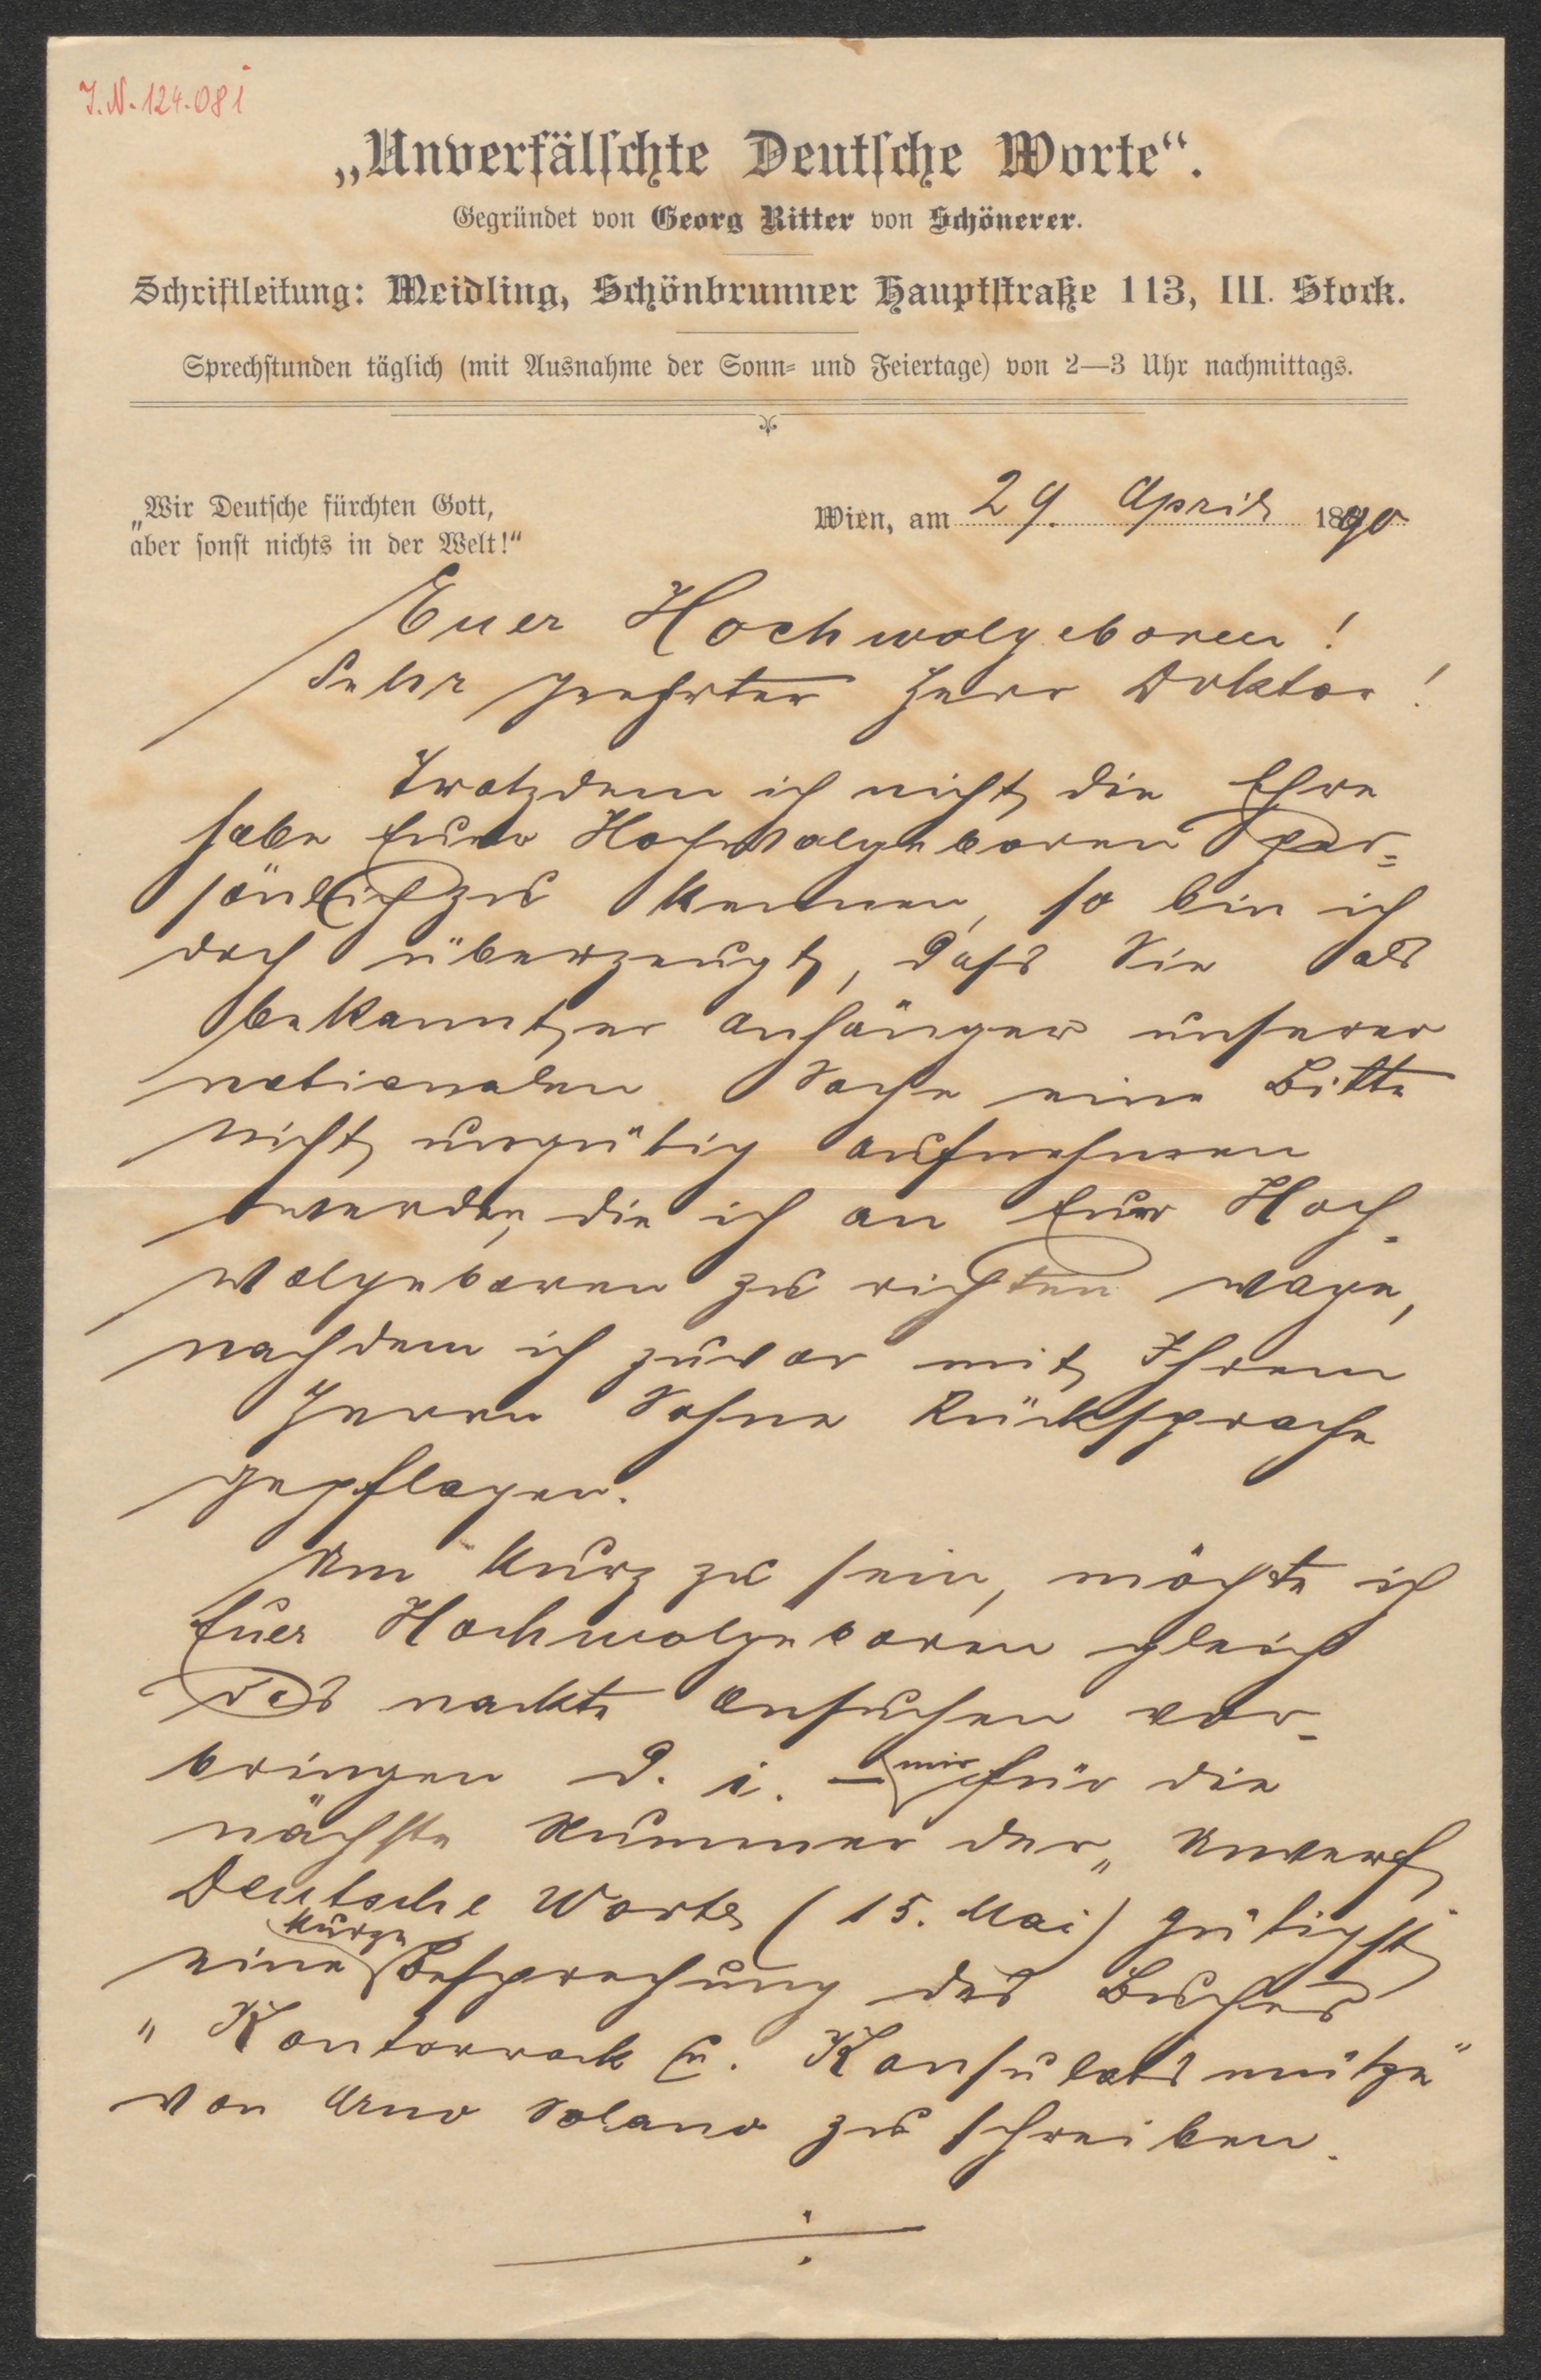 J.N. 124.081
„Unverfälschte Deutsche Worte“.
Gegründet von Georg Ritter von Schönerer.
Schriftleitung: Meidling, Schönbrunner Hauptstraße 113, III. Stock.
Sprechstunden täglich (mit Ausnahme der Sonn- und Feiertage) von 2—3 Uhr nachmittags.
„Wir Deutsche fürchten Gott,
aber sonst nichts in der Welt!“
Wien, am 29. April 1890
Euer Hochwolgeboren!
Sehr geehrter Herr Doktor!
Trotzdem ich nicht die Ehre
habe Euer Hochwolgeboren per-
sönlich zu kennen, so bin ich
doch überzeugt, dass Sie als
bekannter Anhänger unserer
nationalen Sache eine Bitte
nicht ungütig aufnehmen
werden, die ich an Euer Hoch-
wolgeboren zu richten wage,
nachdem ich zuvor mit Ihrem
Herrn Sohne Rücksprache
gepflogen.
Um kurz zu sein, möchte ich
Euer Hochwolgeboren gleich
das nackte Ansuchen vor-
bringen d. i. – mir für die
nächste Nummer der „Unverf.
Deutsche Worte (15. Mai) gütigst
eine kurze Besprechung des Buches
„Kontorrock u. Konsulatsmütze“
von Arno Solano zu schreiben.